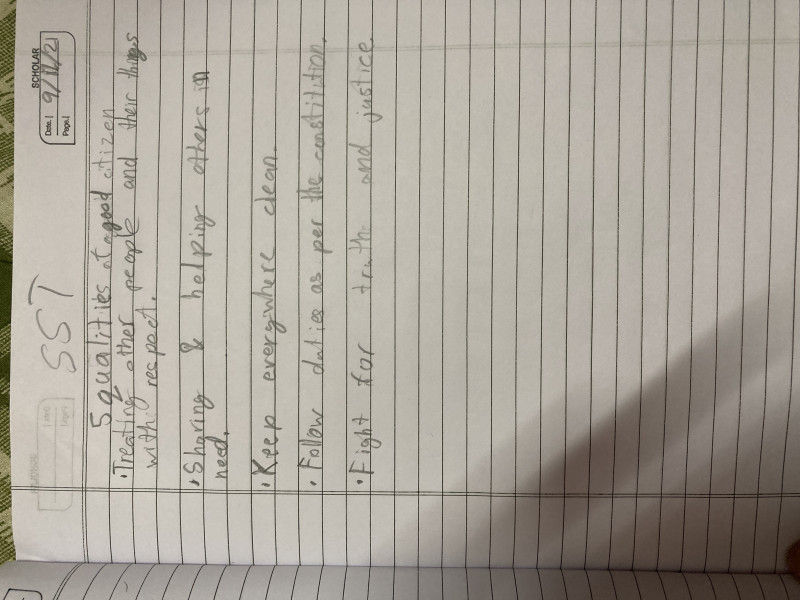 SCHOLAR
Date: 9/11/21
Page:
SST
5 qualities of a good citizen
• Treating other people and their things
with respect.
• Sharing & helping others in
need.
• Keep everywhere clean.
• Follow duties as per the constitution.
• Fight for truth and justice.